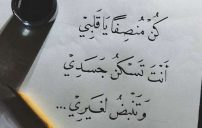 كُنْ مُنصِفًا يَا قَلبِيْ
أَنْتَ تَسْكُنُ جَسَدِيْ
وَتَنْبُضُ لغَيرِيْ...